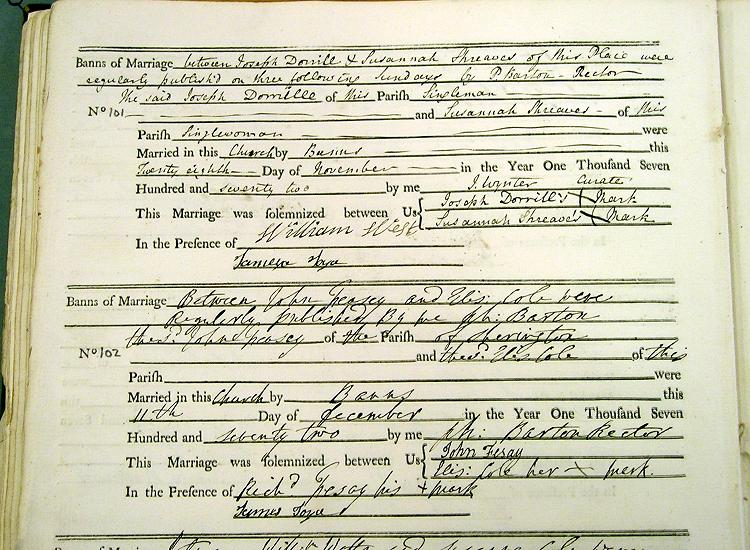 Banns of Marriage between Joseph Dorrill & Susannah Shreaves of this Place were
regularly publish'd on three following Sundays by P. Barton - Rector
The said Joseph Dorrille of this Parish Singleman
No 101 and Susannah Shreaves - of this
Parish Singlewoman were
Married in this Church by Banns this
Twenty eighth Day of November in the Year One Thousand Seven
Hundred and seventy two by me J. Winter Curate
This Marriage was solemnized between Us Joseph Dorrill's X Mark
Susannah Shreaves X Mark
In the Presence of William West
Banns of Marriage Between John and Elis: Cole were
Regularly published By me ph: Barton
the sd. John of the Parish of Sherington
No 102 and the sd. Elis Cole of this
Parish were
Married in this Church by Banns this
11th Day of December in the Year One Thousand Seven
Hundred and seventy two by me ph: Barton Rector
This Marriage was solemnized between Us John Fesay
Elis: Cole her X merk.
In the Presence of Richd Fesay his + mark
James